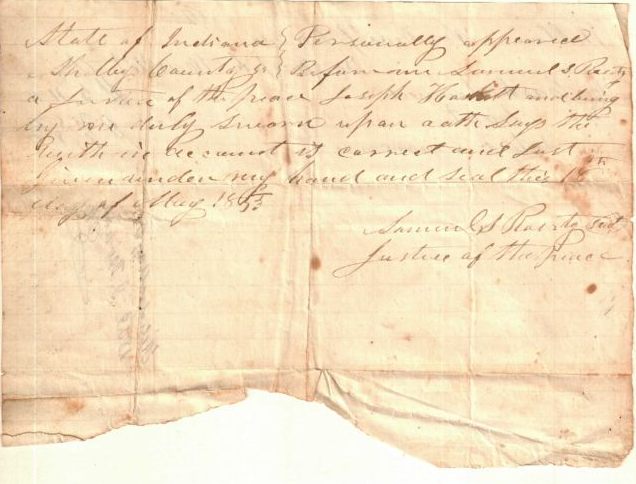 State of Indiana } Personally appeared
Shelby County } Before me Samuel S
a Justice of the peace Joseph and being
by me duly sworn upon oath Says the
with in account is correct and Just
given under my hand and seal this 18th
day of May 1853
Samuel S seal
Justice of the peace